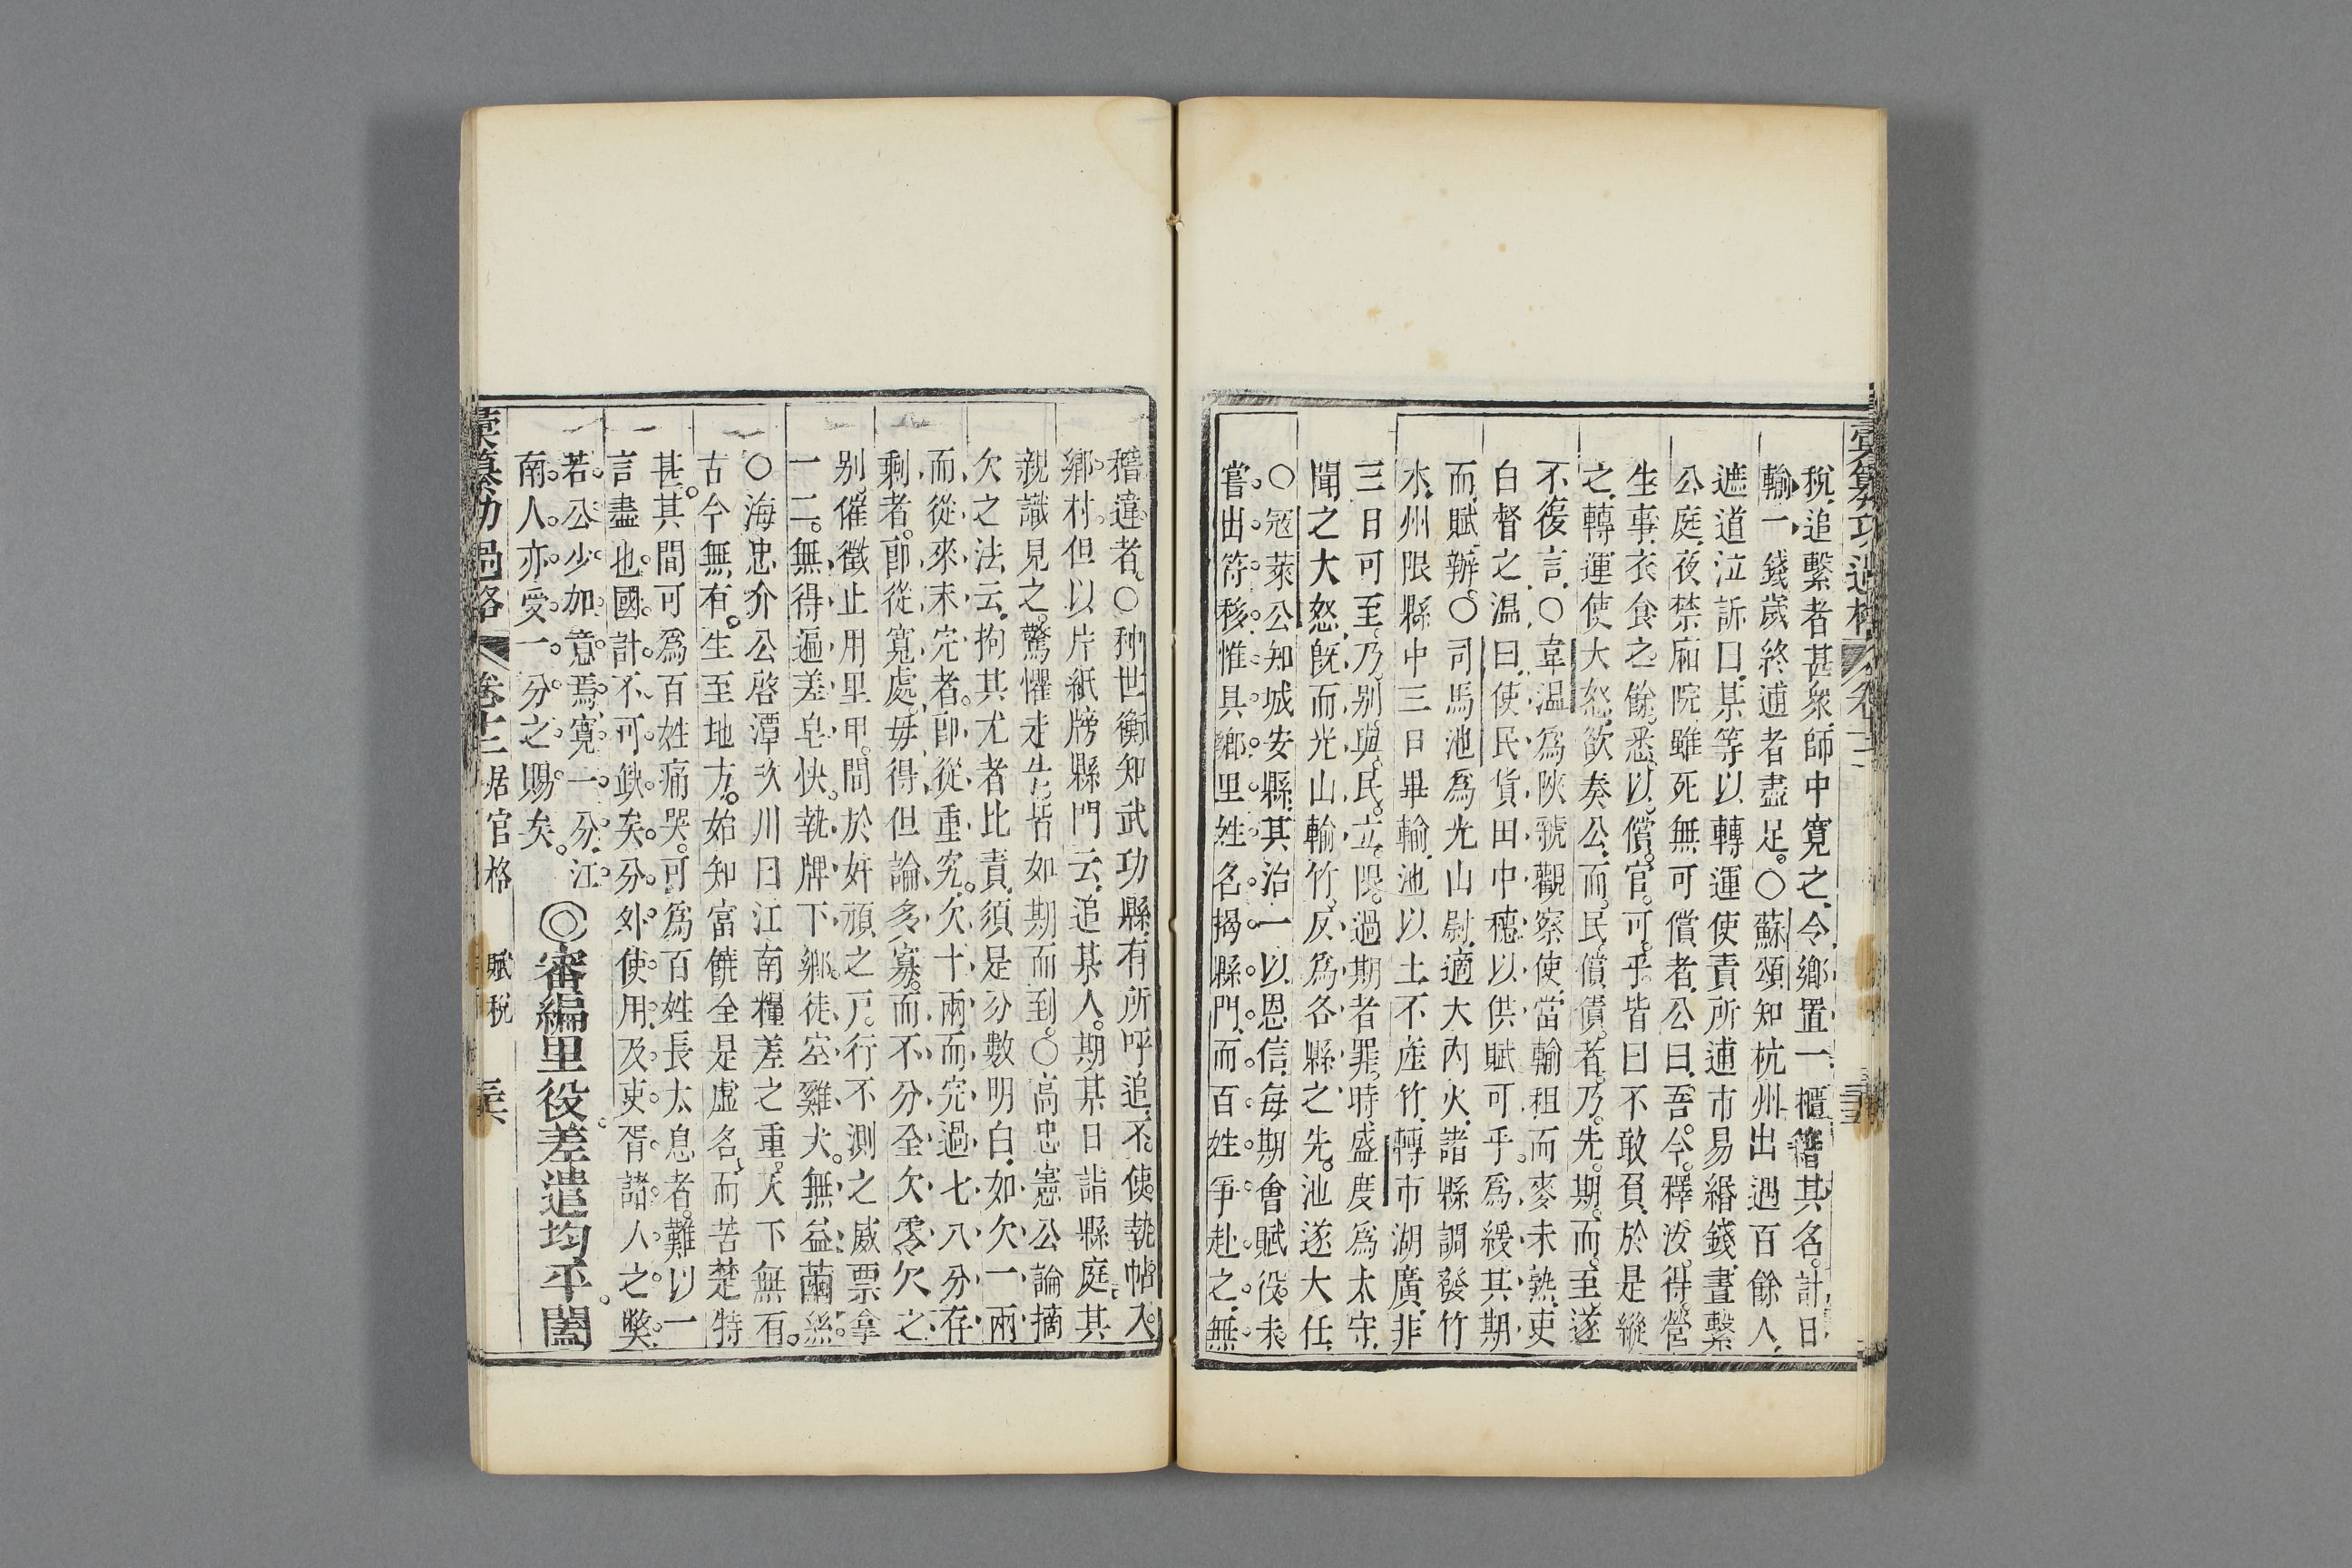 彙纂功過格
卷十二
稅追繫者甚衆師中寬之令鄉置一櫃籍其名計日
輸一錢歲終逋者盡足○蘇頌知杭州出遇百餘人
遮道泣訴曰某等以轉運使責所逋市易緡錢晝繫
公庭夜禁廂院雖死無可償者公曰吾今釋汝得營
生事衣食之餘悉以償官可乎皆曰不敢負於是縱
之轉運使大怒欲奏公而民償債者乃先期而至遂
不復言○韋溫爲陝虢觀察使當輸租而麥未熟吏
白督之溫曰使民貨田中穗以供賦可乎爲緩其期
而賦辦○司馬池爲光山尉適大內火諸縣調發竹
木州限縣中三日畢輸池以土不產竹轉市湖廣非
三日可至乃別與民立限過期者罪時盛度爲太守
聞之大怒旣而光山輸竹反爲各縣之先池遂大任
○寇萊公知城安縣其治一以恩信每期會賦役未
嘗出符移惟具鄉里姓名揭縣門而百姓爭赴之無
稽違者○种世衡知武功縣有所呼追不使執帖入
鄉村但以片紙牓縣門云追某人期某日詣縣庭其
親識見之驚懼走告皆如期而到○高忠憲公論摘
欠之法云拘其尤者比責須是分數明白如欠一兩
而從來未完者卽從重究欠十兩而完過七八分存
剩者卽從寬處毋得但論多寡而不分全欠零欠之
別催徵止用里甲間於奸頑之戶行不測之威票拿
一二無得遍差皂快執牌下鄉徒空雞犬無益繭絲
○海忠介公啓潭玖川曰江南糧差之重天下無有
古今無有生至地方始知富饒全是虛名而苦楚特
甚其間可爲百姓痛哭可爲百姓長太息者難以一
言盡也國計不可缺矣分外使用及吏胥諸人之獘
若公少加意焉寬一分江
南人亦受一分之賜矣　◎審編里役差遣均平闔
彙纂功過格　卷十二　居官格　賦稅　三六